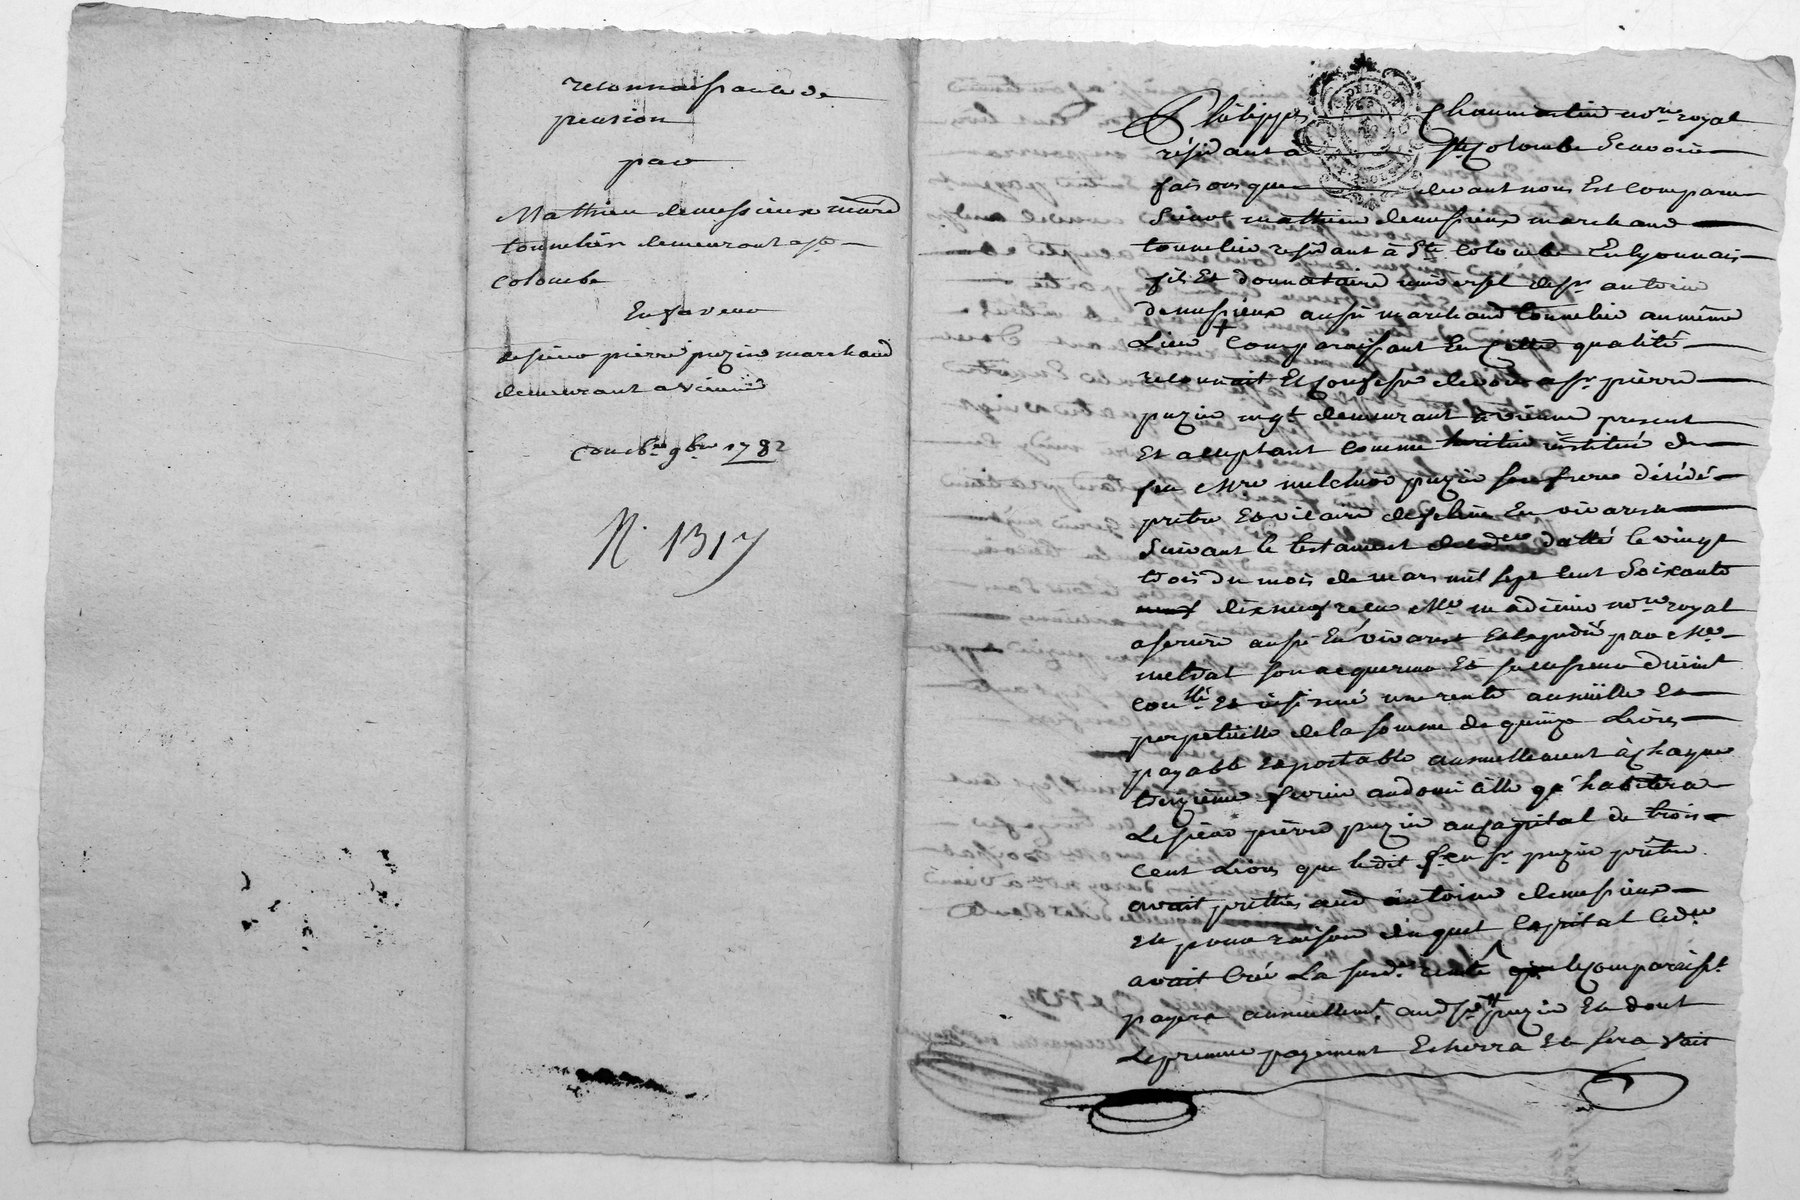 reconnaissance de
pension
par
Mathieu demussieux march
tonnelier demeurant a ste
Colombe
En faveur
de sieur pierre puzin marchand
demeurant a vienne
Du 9bre 1782
N. 1317
Philippe Chaumartin nore royal
résidant à Ste Colombe Scavoir
faisons que devant nous Est comparu
Sieur mathieu demussieux marchand
tonnelier residant à Ste Colombe En lyonnais
fils Et donnataire universel de sr antoine
demussieux aussi marchand tonnelier au même
Lieu + comparaissant En cette qualité
reconnait Et confesse devoir a sr pierre
puzin mgt demeurant a vienne present
Et acceptant comme heritier institué de
feu Mre melchior puzin son frere décédé
pretre Et vicaire de En vivarest
Suivant le testament dud datté le vingt
trois du mois de mars mil sept cent Soixante
dixneuf recu Me nore royal
a serriere aussi En vivarest Et Expedié par Me
son acquereur Et successeur duemt
collé Et insinué une rente annuelle Et
perpetuelle de la somme de quinze Livres
payable Et portable annuellement à chaque
fevrier au domicille qu'habitera
Le sieur pierre puzin au capital de trois
Cent Livres que ledit feu sr puzin prêtre
avait prettés aud antoine demussieux
Et pour raison duquel Capital led
avait Créé La susd. rente ^ le comparaisst
payera annuellemt. aud sr puzin Et dont
Le premier payement Echerra Et sera fait